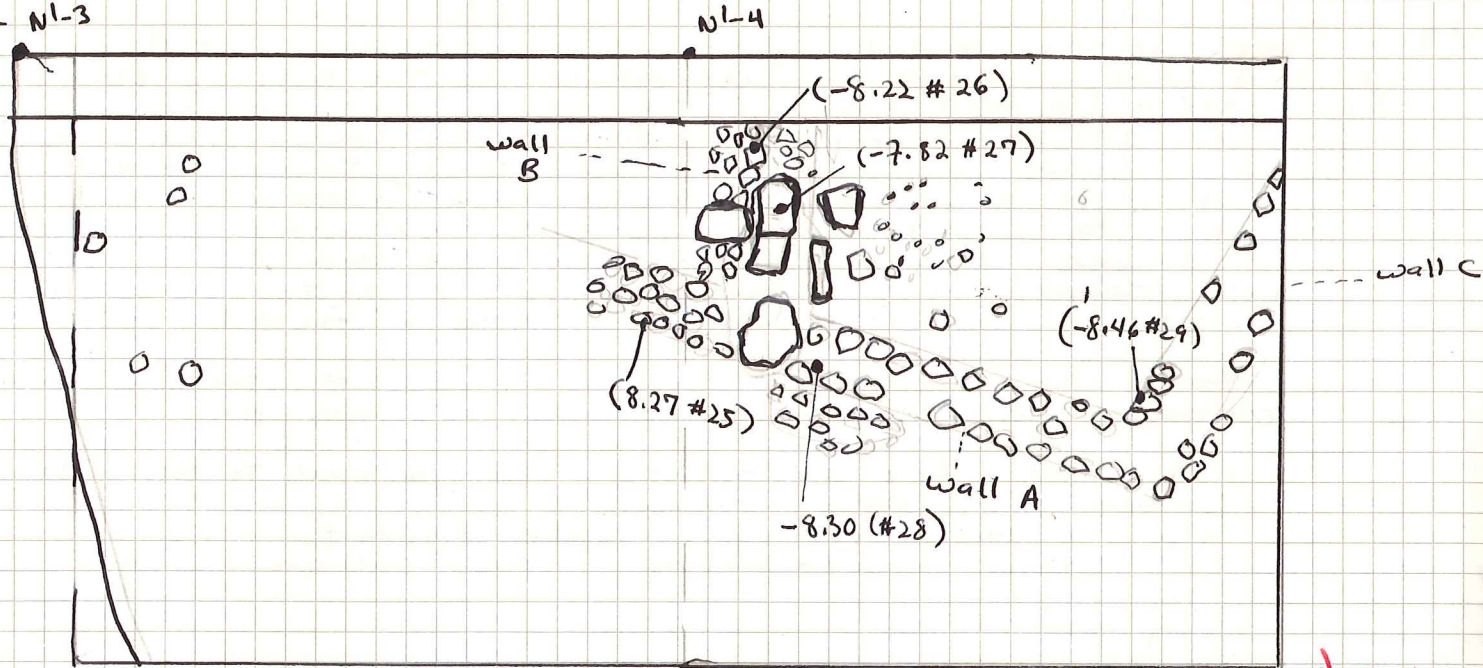 N'-3
N'-4
(-8.22 # 26)
wall
B
(-7.82 #27)
wall C
(-8.46 #29)
(8.27 #25)
wall A
-8.30 (#28)